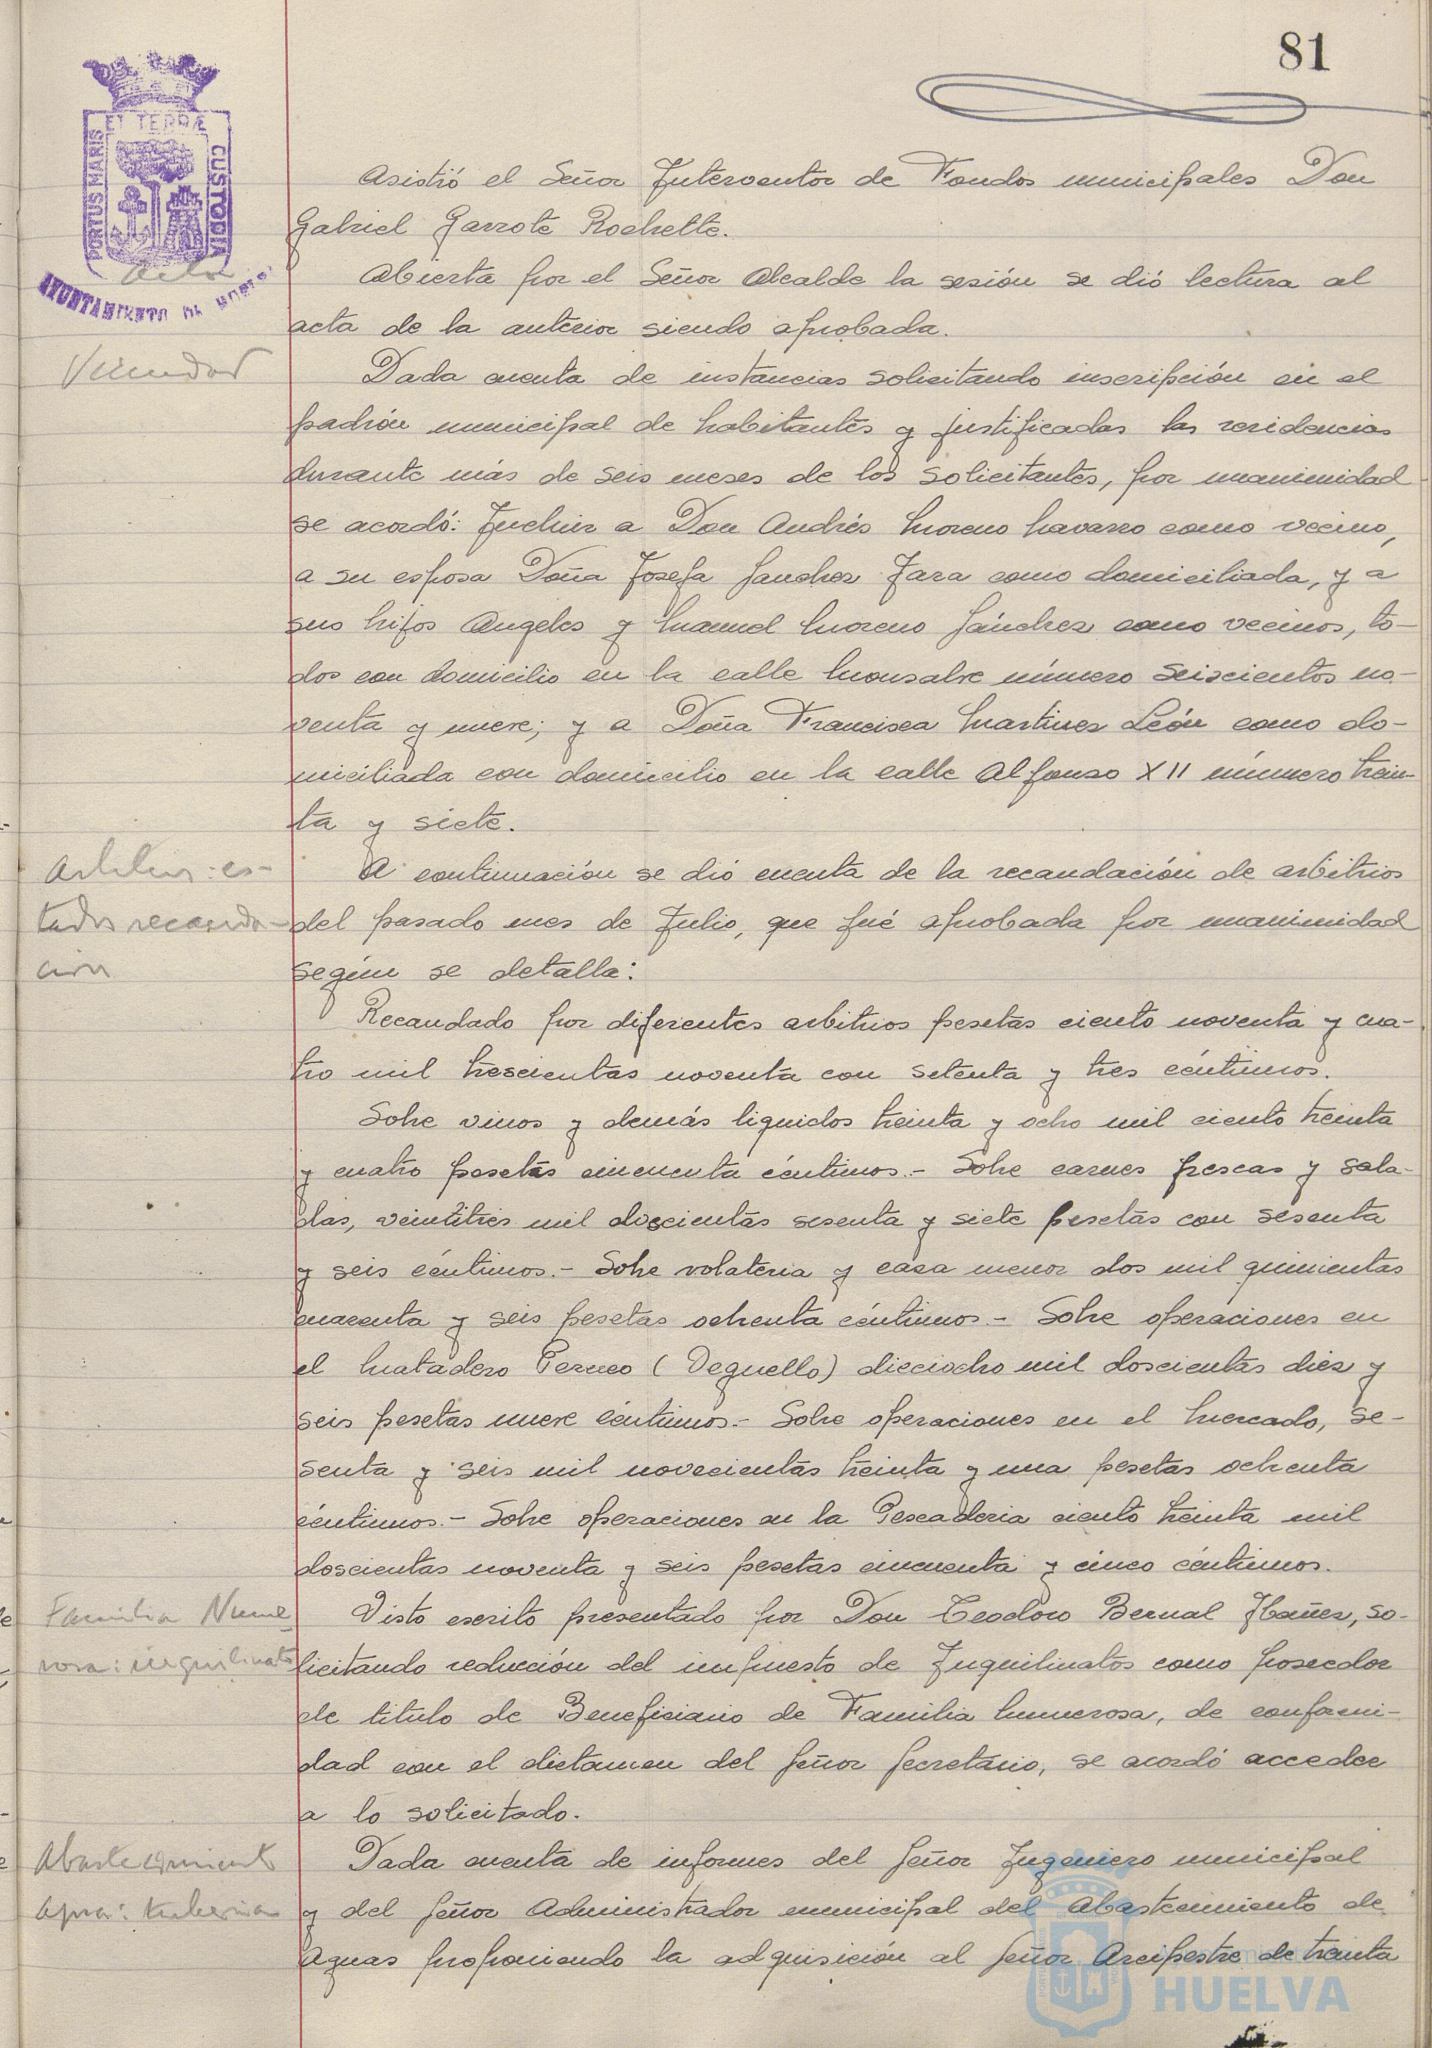 81
PORTUS MARIS ET TERRÆ CUSTODIA
AYUNTAMIENTO DE
Acta
Asistió el Señor Interventor de Fondos municipales Don
Gabriel Garrote Rochette.
Abierta por el Señor Alcalde la sesión se dió lectura al
acta de la anterior siendo aprobada.
Vecindad
Dada cuenta de instancias solicitando inscripción en el
padrón municipal de habitantes y justificadas las residencias
durante más de seis meses de los solicitantes, por unanimidad
se acordó: Incluir a Don Andrés Moreno Navarro como vecino,
a su esposa Doña Josefa Sanchez Jara como domiciliada, y a
sus hijos Angeles y Manuel Moreno Sánchez como vecinos, to-
dos con domicilio en la calle Monsalve número seiscientos no-
venta y nueve; y a Doña Francisca Martinez León como do-
miciliada con domicilio en la calle Alfonso XII número trein-
ta y siete.
Arbitrios: es-
tados recauda-
ción
A continuación se dió cuenta de la recaudación de arbitrios
del pasado mes de Julio, que fué aprobada por unanimidad
según se detalla:
Recaudado por diferentes arbitrios pesetas ciento noventa y cua-
tro mil trescientas noventa con setenta y tres céntimos.
Sobre vinos y demás liquidos treinta y ocho mil ciento treinta
y cuatro pesetas cincuenta céntimos.- Sobre carnes frescas y sala-
das, veintitres mil doscientas sesenta y siete pesetas con sesenta
y seis céntimos.- Sobre volateria y caza menor dos mil quinientas
cuarenta y seis pesetas ochenta céntimos.- Sobre operaciones en
el Matadero Perneo (Deguello) dieciocho mil doscientas diez y
seis pesetas nueve céntimos.- Sobre operaciones en el Mercado, se-
senta y seis mil novecientas treinta y una pesetas ochenta
céntimos.- Sobre operaciones en la Pescaderia ciento treinta mil
doscientas noventa y seis pesetas cincuenta y cinco céntimos.
Familia Nume
rosa: inquilinato
Visto escrito presentado por Don Teodoro Bernal Ibañez, so-
licitando reducción del impuesto de Inquilinatos como poseedor
de titulo de Beneficiario de Familia Numerosa, de conformi-
dad con el dictamen del Señor Secretario, se acordó acceder
a lo solicitado.
Abastecimiento
agua: tuberias
Dada cuenta de informes del Señor Ingeniero municipal
y del Señor Administrador municipal del Abastecimiento de
Aguas proponiendo la adquisición al Señor Arcipestre de treinta
HUELVA